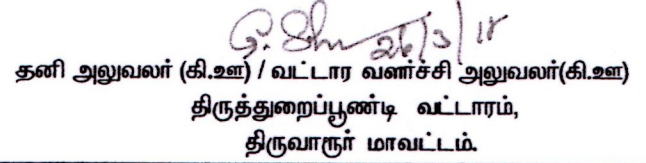 26/3/18
தனி அலுவலர் (கி.ஊ) / வட்டார வளர்ச்சி அலுவலர்(கி.ஊ)
திருத்துறைப்பூண்டி வட்டாரம்,
திருவாரூர் மாவட்டம்.